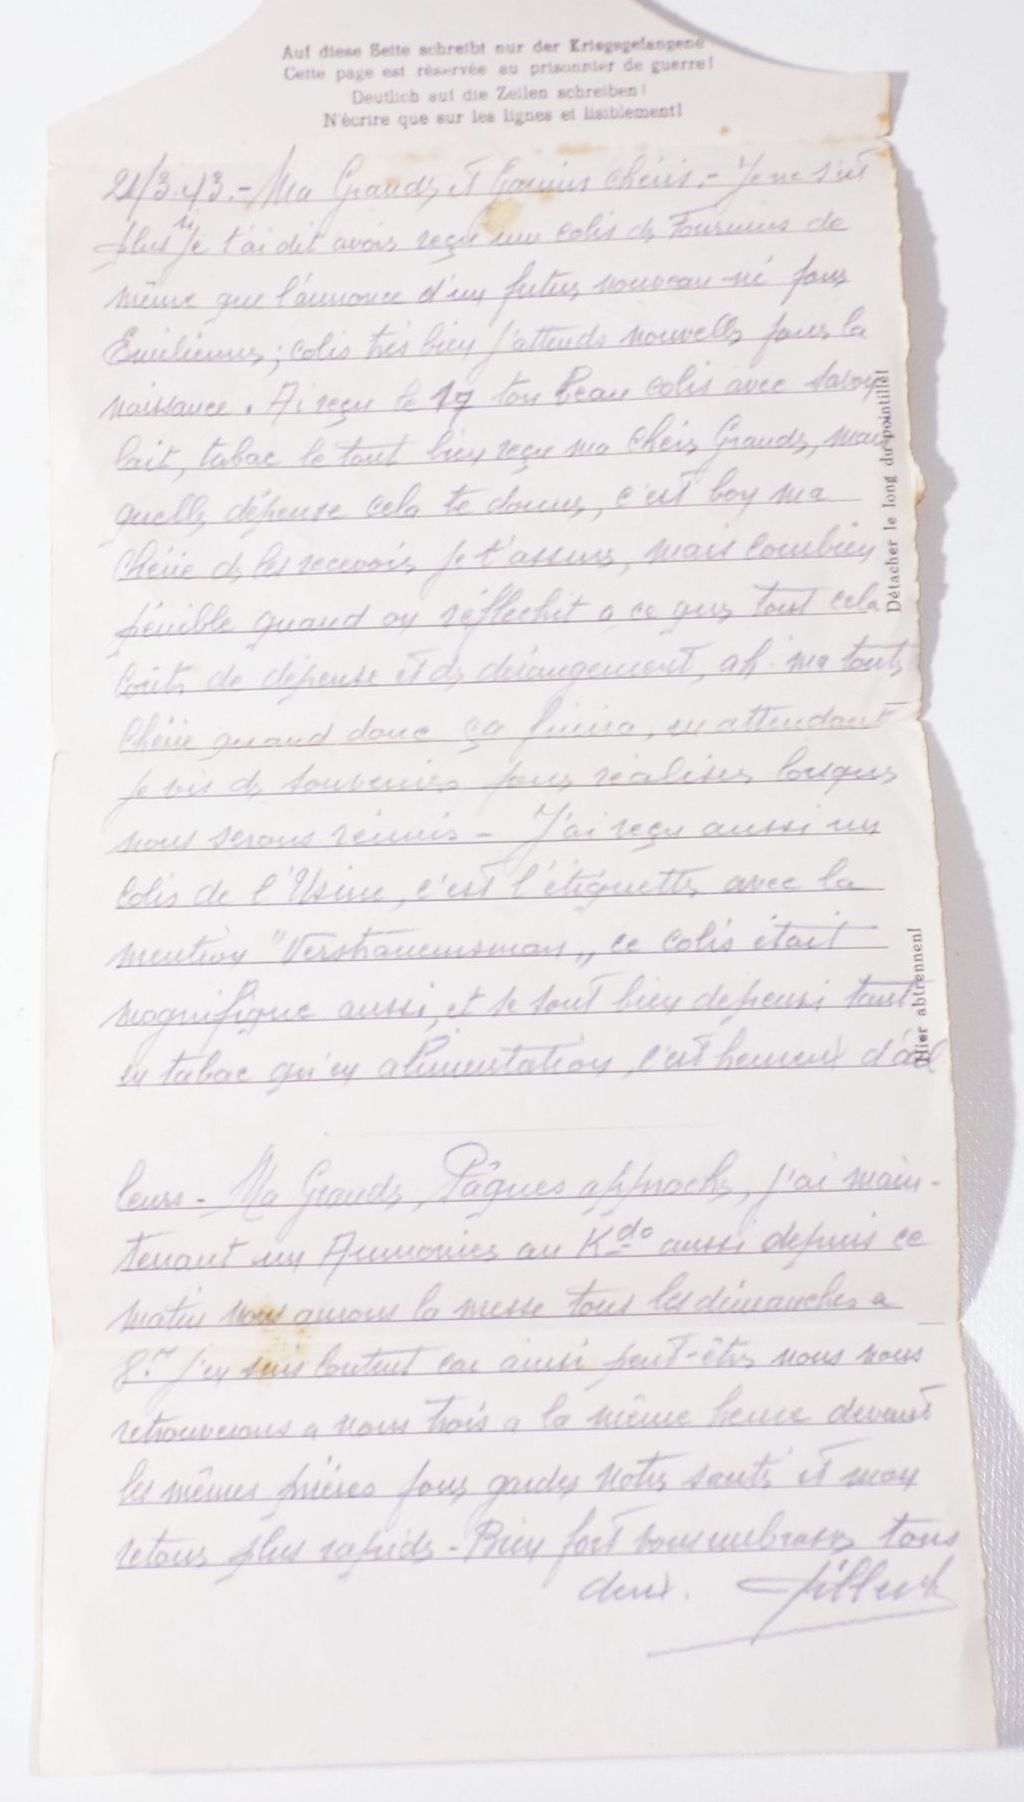 Auf diese Seite schreibt nur der Kriegsgefangene
Cette page est réservée au prisonnier de guerre!
Deutlich auf die Zeilen schreiben!
N'écrire que sur les lignes et lisiblement!
21/3.43.- Ma Grande et chéris.- Je ne sait
plus si je t'ai dit avoir reçu un colis de Tournus de
même que l'annonce d'un futur nouveau-né pour
Emilienne; colis très bien j'attends nouvelle pour la
naissance. Ai reçu le 17 ton beau colis avec savon
lait, tabac le tout bien reçu ma chère Grande, mais
quelle dépense cela te donne, c'est bon ma
chérie de les recevoir je t'assure, mais combien
pénible quand on réfléchit a ce que tout cela
coûte de dépense et de dérangement, ah. ma toute
chérie quand donc ça finira, en attendant
je vis de souvenirs pour réaliser lorsque
nous serons réunis - J'ai reçu aussi un
colis de l'Usine, c'est l'étiquette avec la
mention " „ ce colis était
magnifique aussi, et le tout bien tant
en tabac qu'en alimentation, c'est heureux d'ail
leurs - Ma Grande, Pâques approche, j'ai main-
tenant un Aumonier au Kdo aussi depuis ce
matin nous aurons la messe tous les dimanches a
8h j'en suis content car ainsi peut-être nous nous
retrouverons a nous trois a la même heure devant
les mêmes prières pour garder notre santé et mon
retour plus rapide - Bien fort vous embrasse tous
deux. Gilbert
Détacher le long du pointillé!
Hier abtrennen!